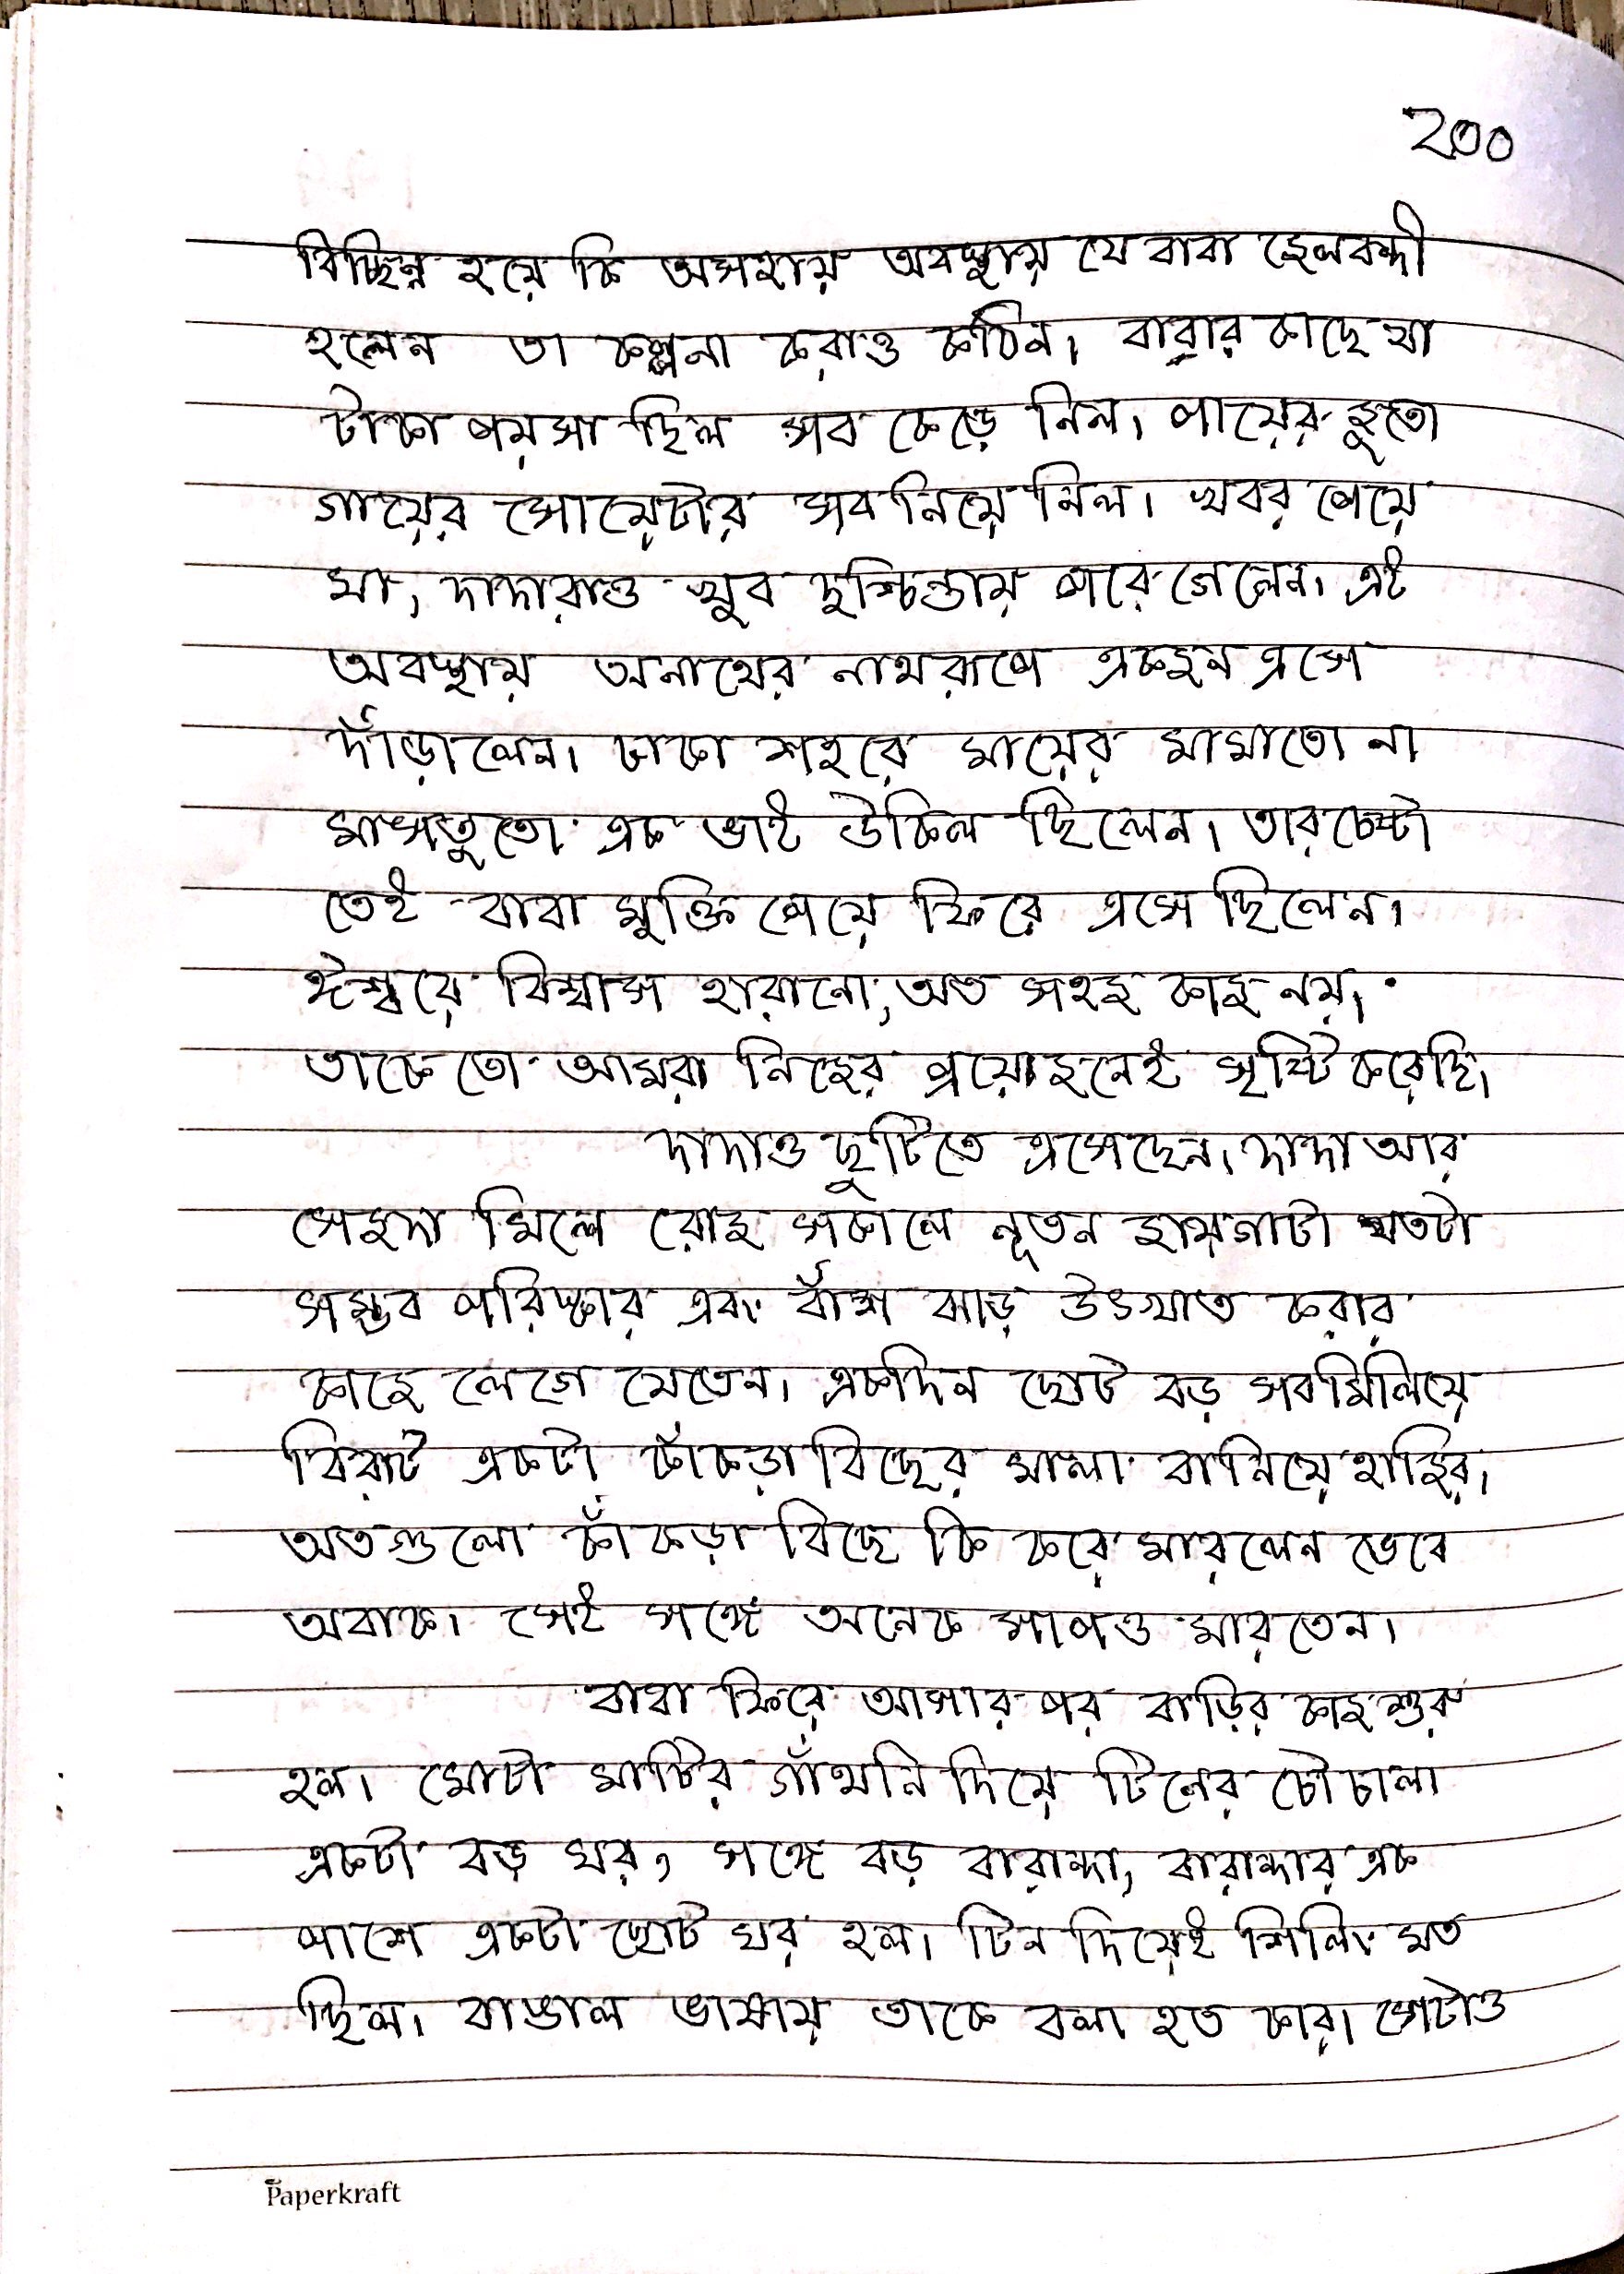 ২০০
বিচ্ছিন্ন হয়ে কি অসহায় অবস্থায় যে বাবা জেলবন্দী
হলেন তা কল্পনা করাও কঠিন। বাবার কাছে যা
টাকা পয়সা ছিল সব কেড়ে নিল। পায়ের জুতো
গায়ের সোয়েটার সব নিয়ে নিল। খবর পেয়ে
মা, দাদারাও খুব দুশ্চিন্তায় পরে গেলেন। এই
অবস্থায় অনাথের নাথরূপে একজন এসে
দাঁড়ালেন। ঢাকা শহরে মায়ের মামাতো না
মাসতুতো এক ভাই উকিল ছিলেন। তার চেষ্টা
তেই বাবা মুক্তি পেয়ে ফিরে এসেছিলেন।
ঈশ্বরে বিশ্বাস হারানো, অত সহজ কাজ নয়।
তাকে তো আমরা নিজের প্রয়োজনেই সৃষ্টি করেছি।
দাদাও ছুটিতে এসেছেন। দাদা আর
সেজদা মিলে রোজ সকালে নূতন জায়গাটা যতটা
সম্ভব পরিষ্কার এবং বাঁশ ঝাড় উৎখাত করার
কাজে লেগে যেতেন। একদিন ছোট বড় সব মিলিয়ে
বিরাট একটা কাঁকড়া বিছের মালা বানিয়ে হাজির।
অতগুলো কাঁকড়া বিছে কি করে মারলেন ভেবে
অবাক। সেই সঙ্গে অনেক সাপও মারতেন।
বাবা ফিরে আসার পর বাড়ির কাজ শুরু
হল। মোটা মাটির গাঁথনি দিয়ে টিনের চৌচালা
একটা বড় ঘর, সঙ্গে বড় বারান্দা, বারান্দার এক
পাশে একটা ছোট ঘর হল। টিন দিয়েই শিলিং মত
ছিল। বাঙাল ভাষায় তাকে বলা হত কার। সেটাও
Paperkraft